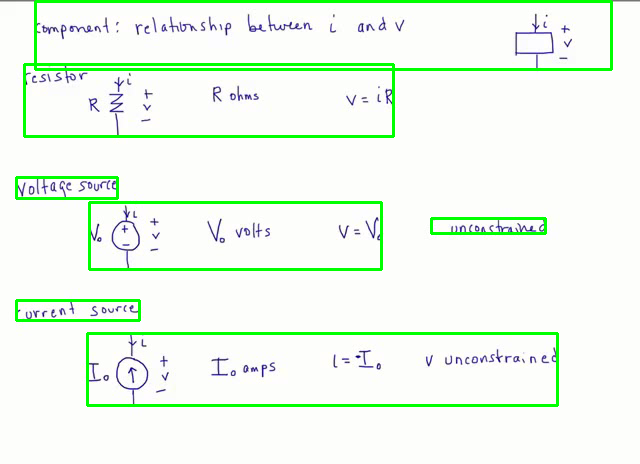 component: relationship between i and v
i + v -
resistor
R i + v - R ohms v = iR
voltage source
V₀ i + - + v - V₀ volts v = V₀ unconstrained
current source
I₀ i + v - I₀ amps i = -I₀ v unconstrained